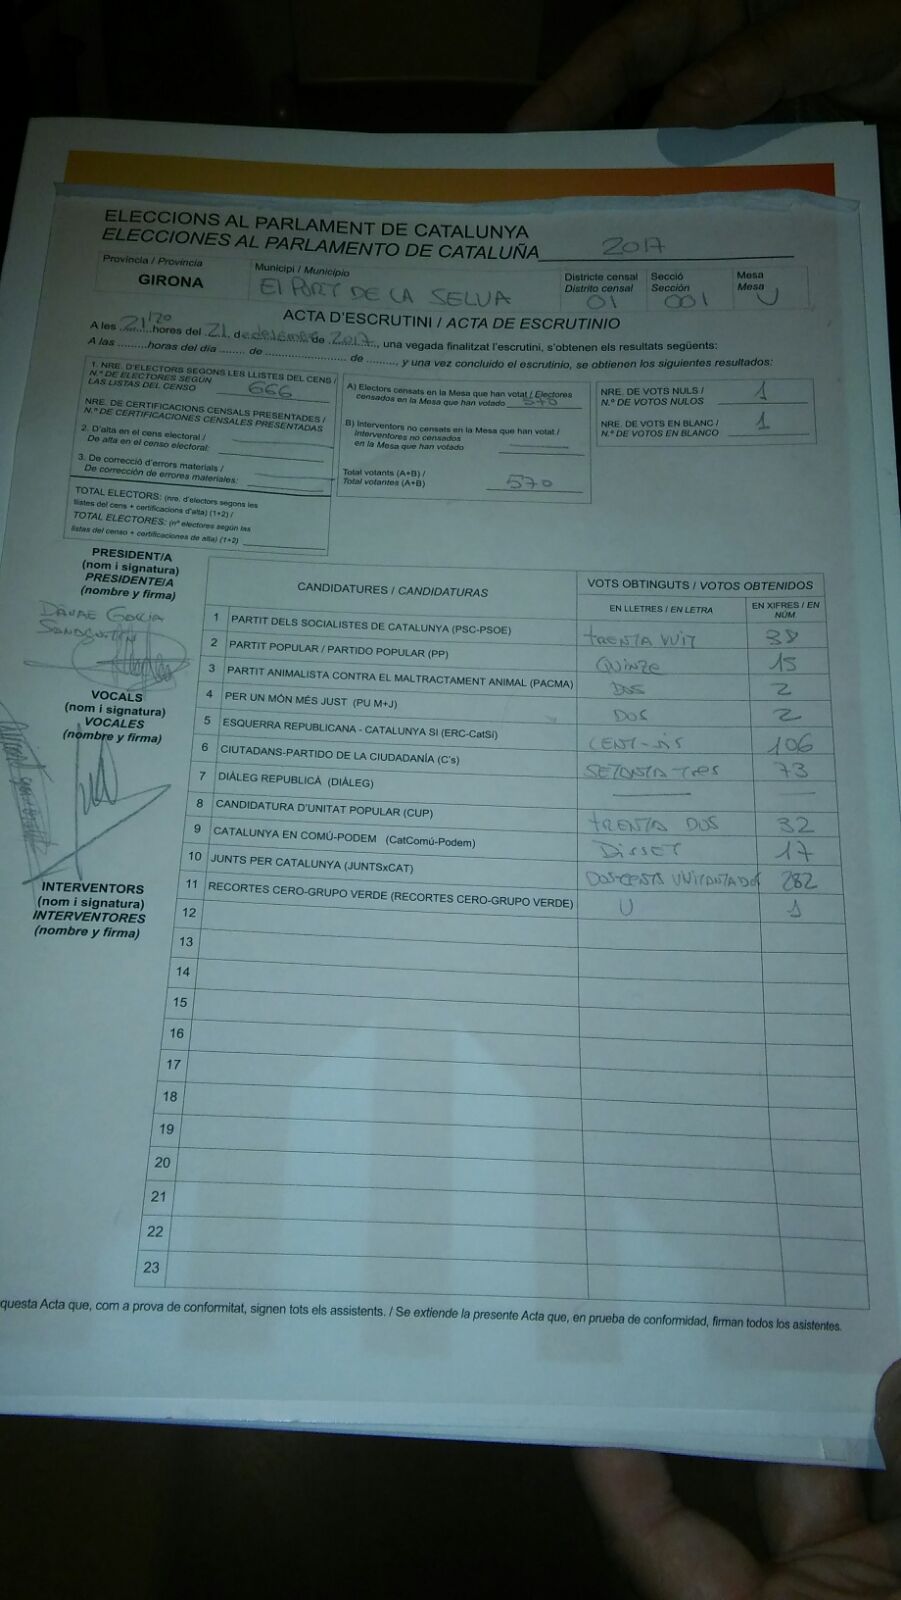 ELECCIONS AL PARLAMENT DE CATALUNYA
ELECCIONES AL PARLAMENTO DE CATALUÑA 2017
Provincia / Provincia
GIRONA
Municipi / Municipio
El PORT DE LA SELVA
Districte censal
Distrito censal
01
Secció
Sección
001
Mesa
Mesa
U
ACTA D'ESCRUTINI / ACTA DE ESCRUTINIO
A les 21'20 hores del 21 de desembre de 2017, una vegada finalitzat l'escrutini, s'obtenen els resultats següents:
A las .........horas del día ........ de ......................... de ........ y una vez concluido el escrutinio, se obtienen los siguientes resultados:
1. NRE. D'ELECTORS SEGONS LES LLISTES DEL CENS /
N.º DE ELECTORES SEGÚN
LAS LISTAS DEL CENSO 666
NRE. DE CERTIFICACIONS CENSALS PRESENTADES /
N.º DE CERTIFICACIONES CENSALES PRESENTADAS
2. D'alta en el cens electoral /
De alta en el censo electoral:
3. De correcció d'errors materials /
De corrección de errores materiales:
TOTAL ELECTORS: (nre. d'electors segons les
llistes del cens + certificacions d'alta) (1+2) /
TOTAL ELECTORES: (nº electores según las
listas del censo + certificaciones de alta) (1+2)
A) Electors censats en la Mesa que han votat / Electores
censados en la Mesa que han votado 570
B) Interventors no censats en la Mesa que han votat /
Interventores no censados
en la Mesa que han votado
Total votants (A+B) /
Total votantes (A+B) 570
NRE. DE VOTS NULS /
N.º DE VOTOS NULOS 1
NRE. DE VOTS EN BLANC /
N.º DE VOTOS EN BLANCO 1
PRESIDENT/A
(nom i signatura)
PRESIDENTE/A
(nombre y firma)
VOCALS
(nom i signatura)
VOCALES
(nombre y firma)
INTERVENTORS
(nom i signatura)
INTERVENTORES
(nombre y firma)
CANDIDATURES / CANDIDATURAS
VOTS OBTINGUTS / VOTOS OBTENIDOS
EN LLETRES / EN LETRA
EN XIFRES / EN NÚM
1 PARTIT DELS SOCIALISTES DE CATALUNYA (PSC-PSOE) TRENTA VUIT 38
2 PARTIT POPULAR / PARTIDO POPULAR (PP) QUINZE 15
3 PARTIT ANIMALISTA CONTRA EL MALTRACTAMENT ANIMAL (PACMA) DOS 2
4 PER UN MÓN MÉS JUST (PU M+J) DOS 2
5 ESQUERRA REPUBLICANA - CATALUNYA SI (ERC-CatSí) CENT-SIS 106
6 CIUTADANS-PARTIDO DE LA CIUDADANÍA (C's) SETANTA TRES 73
7 DIÀLEG REPUBLICÀ (DIÀLEG)
8 CANDIDATURA D'UNITAT POPULAR (CUP) TRENTA DOS 32
9 CATALUNYA EN COMÚ-PODEM (CatComú-Podem) DISSET 17
10 JUNTS PER CATALUNYA (JUNTSxCAT) DOS-CENTS VUITANTADOS 282
11 RECORTES CERO-GRUPO VERDE (RECORTES CERO-GRUPO VERDE) U 1
12
13
14
15
16
17
18
19
20
21
22
23
questa Acta que, com a prova de conformitat, signen tots els assistents. / Se extiende la presente Acta que, en prueba de conformidad, firman todos los asistentes.